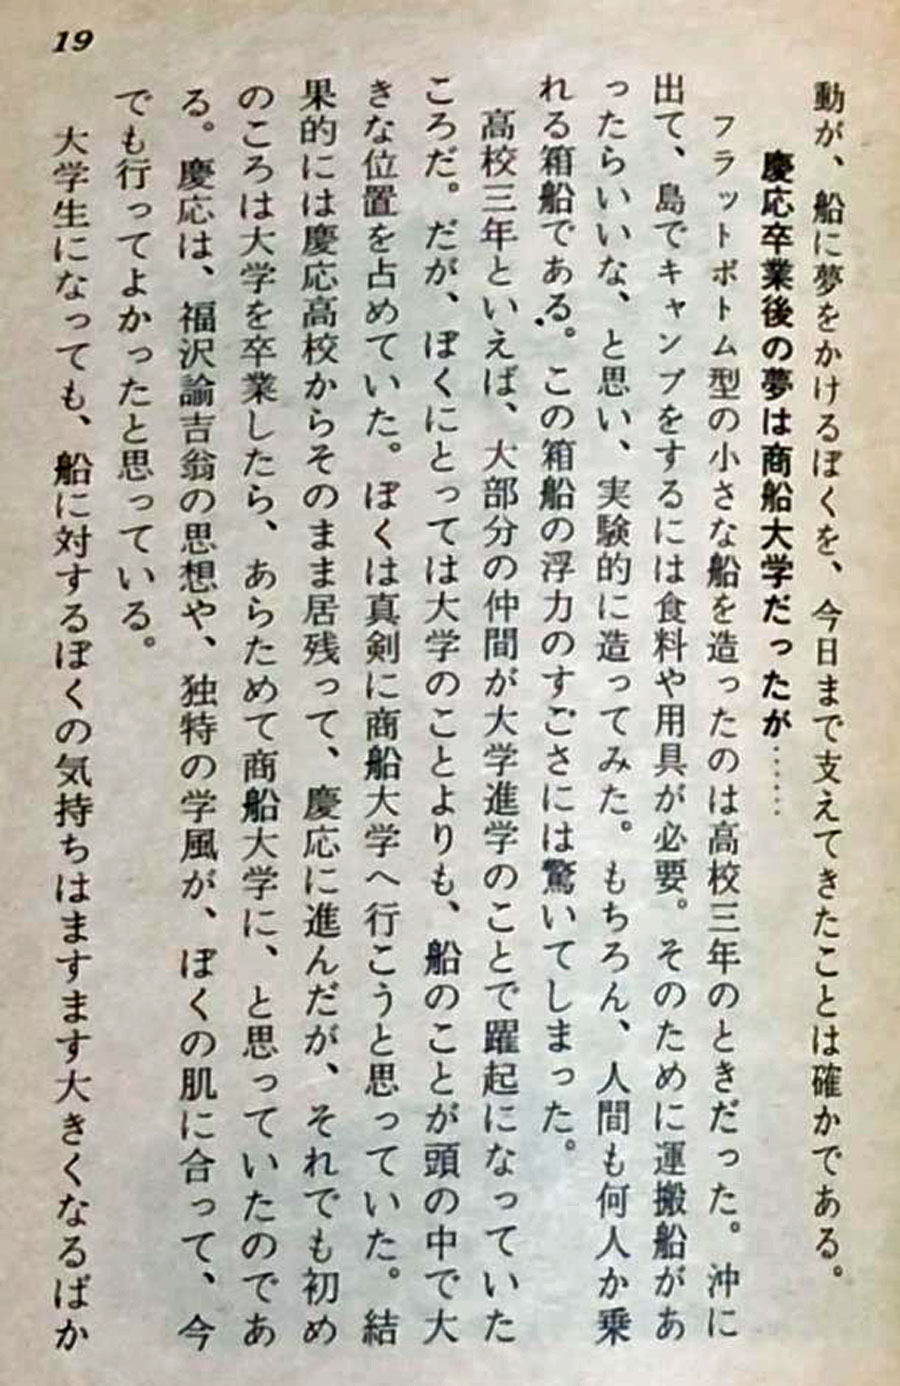 動が、船に夢をかけるぼくを、今日まで支えてきたことは確かである。
慶応卒業後の夢は商船大学だったが……
フラットボトム型の小さな船を造ったのは高校三年のときだった。沖に
出て、島でキャンプをするには食料や用具が必要。そのために運搬船があ
ったらいいな、と思い、実験的に造ってみた。もちろん、人間も何人か乗
れる箱船である。この箱船の浮力のすごさには驚いてしまった。
高校三年といえば、大部分の仲間が大学進学のことで躍起になっていた
ころだ。だが、ぼくにとっては大学のことよりも、船のことが頭の中で大
きな位置を占めていた。ぼくは真剣に商船大学へ行こうと思っていた。結
果的には慶応高校からそのまま居残って、慶応に進んだが、それでも初め
のころは大学を卒業したら、あらためて商船大学に、と思っていたのであ
る。慶応は、福沢諭吉翁の思想や、独特の学風が、ぼくの肌に合って、今
でも行ってよかったと思っている。
大学生になっても、船に対するぼくの気持ちはますます大きくなるばか
19